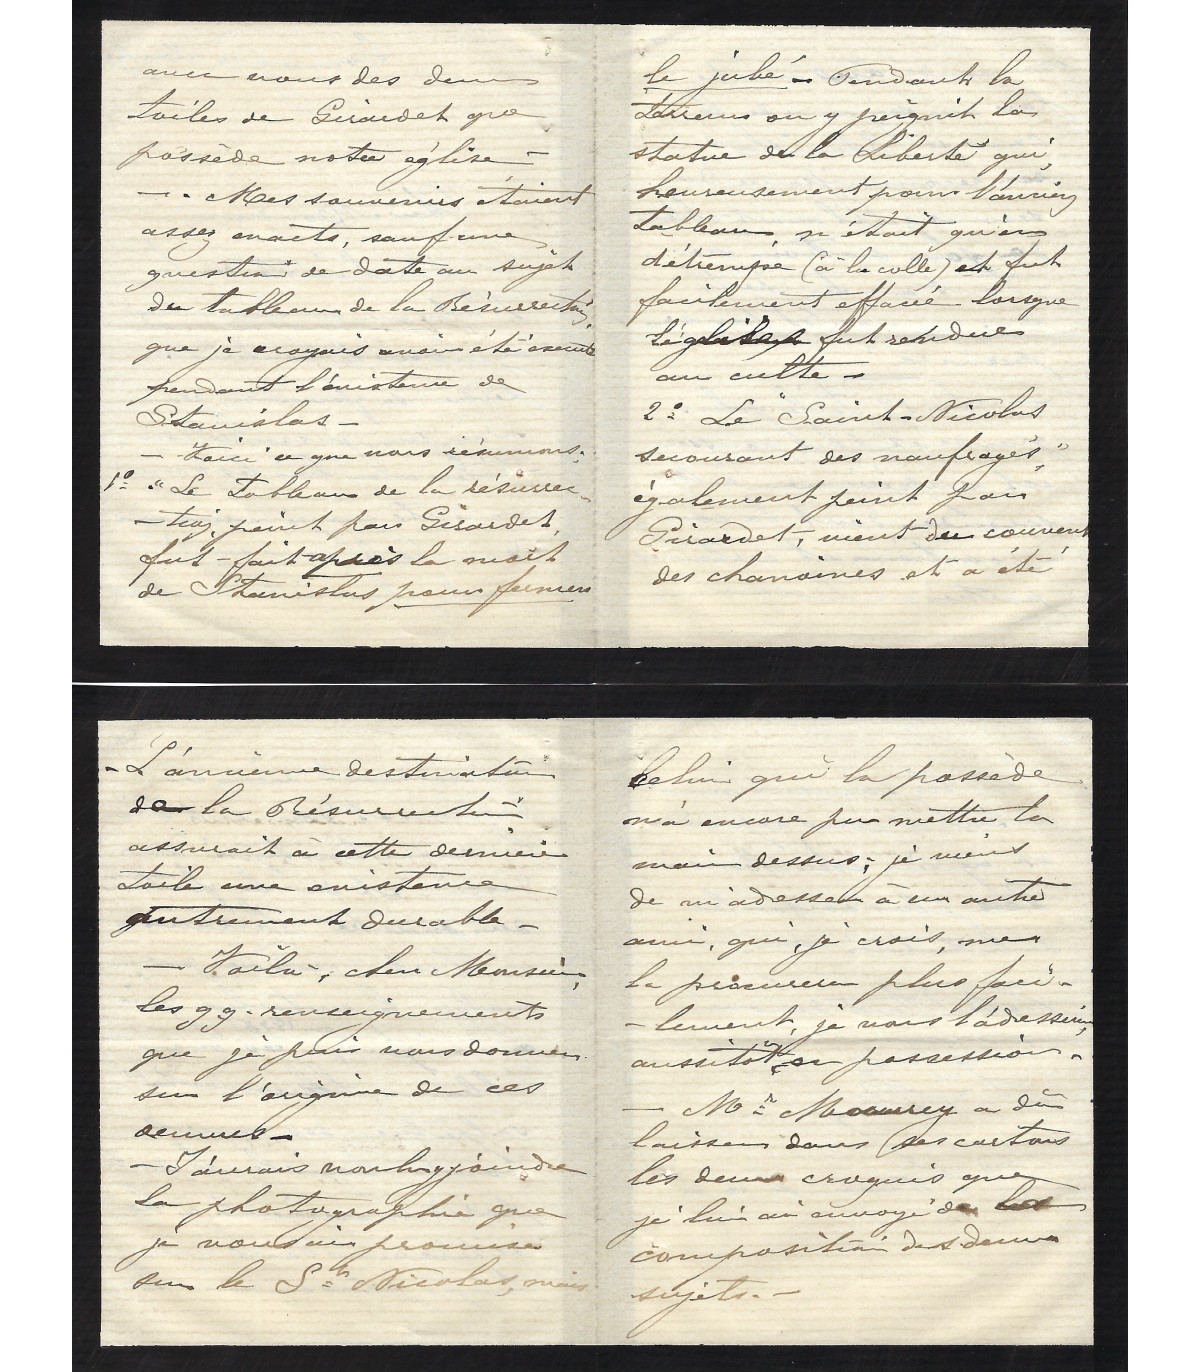 avec vous des deux
toiles de Girardet que
possède notre église —
— . Mes souvenirs étaient
assez exacts, sauf une
question de date au sujet
du tableau de la Résurrection,
que je croyais avoir été exécuté
pendant l'existence de
Stanislas —
— Voici ce que nous résumons:
1º "Le tableau de la résurrec-
-tion, peint par Girardet,
fut fait après la mort
de Stanislas pour fermer
le jubé — Pendant la
terreur on y peignit la
statue de la Liberté qui,
heureusement pour l'ancien
tableau, n'était qu'en
détrempe (à la colle) et fut
facilement effacée lorsque
l'église fut rendue
au culte —
2º Le "Saint-Nicolas
secourant des naufragés,"
également peint par
Girardet, vient du couvent
des chanoines et a été
- L'ancienne destination
de la Résurrection
assurait à cette dernière
toile une existence
autrement durable —
— Voilà, cher Monsieur,
les qq. renseignements
que je puis vous donner
sur l'origine de ces
œuvres —
— J'aurais voulu y joindre
la photographie que
je vous ai promise
sur le St Nicolas, mais
celui qui la possède
n'a encore pu mettre la
main dessus; je viens
de m'adresser à un autre
ami, qui, je crois, me
la procurera plus faci-
-lement, je vous l'adresserai,
aussitôt en possession —
— Mr a dû
laisser dans ses cartons
les deux croquis que
je lui ai envoyé de la
composition des deux
sujets. —